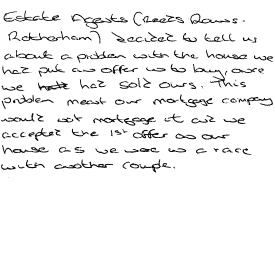 Estate Agents (Reeds Rains.
Rotherham) Decided to tell us
about a problem with the house we
had put an offer in to buy, once
we had sold ours. This
problem meant our mortgage company
would not mortgage it and we
accepted the 1st offer on our
house as we were in a race
with another couple.